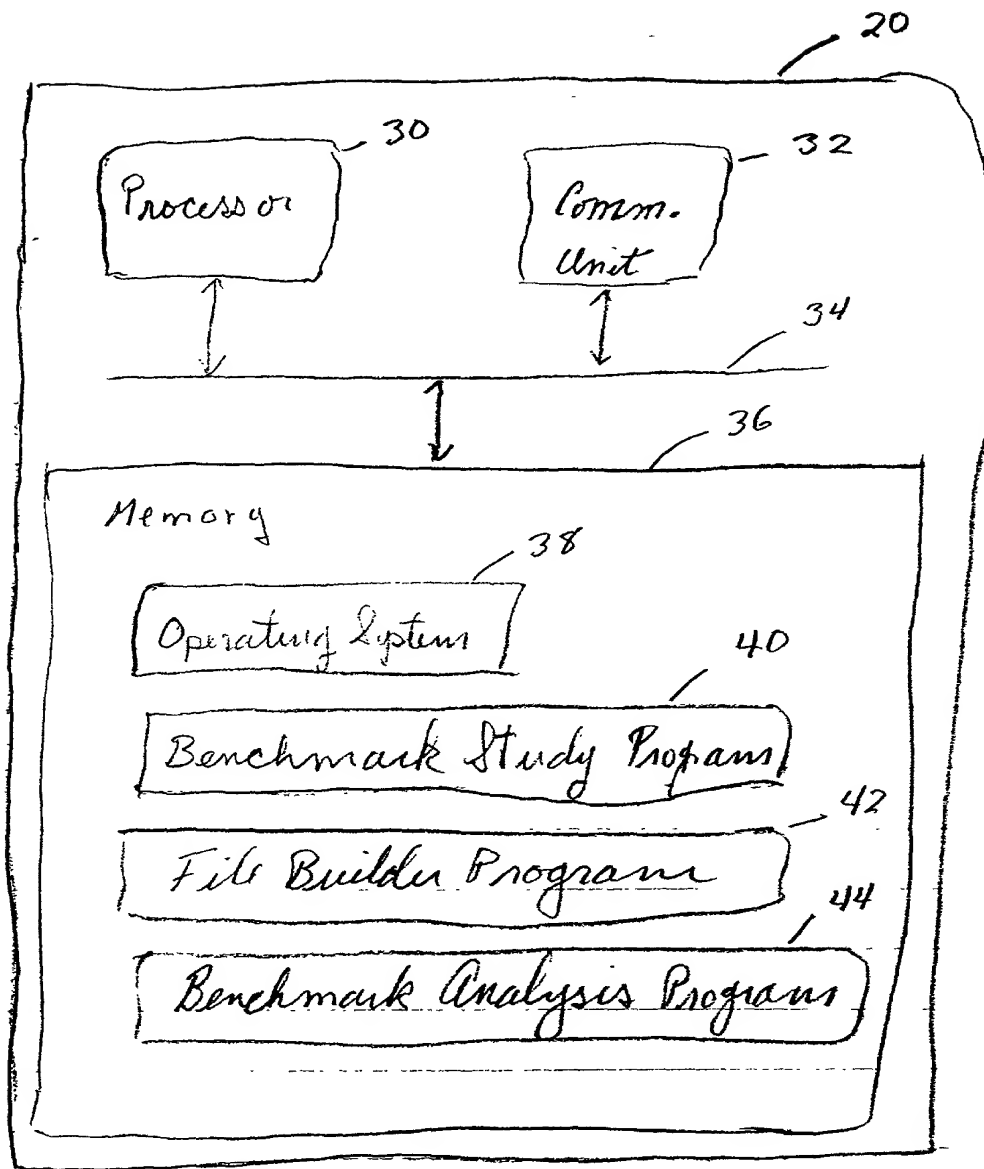 20
30
Processor
32
Comm.
Unit
34
36
Memory
38
Operating System
40
Benchmark Study Program
42
File Builder Program
44
Benchmark Analysis Program